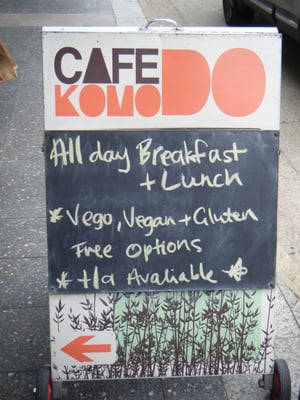 CAFE
KOMODO
All day Breakfast
+ Lunch
* Vego, Vegan + Gluten
Free Options
* Also Avaliable *